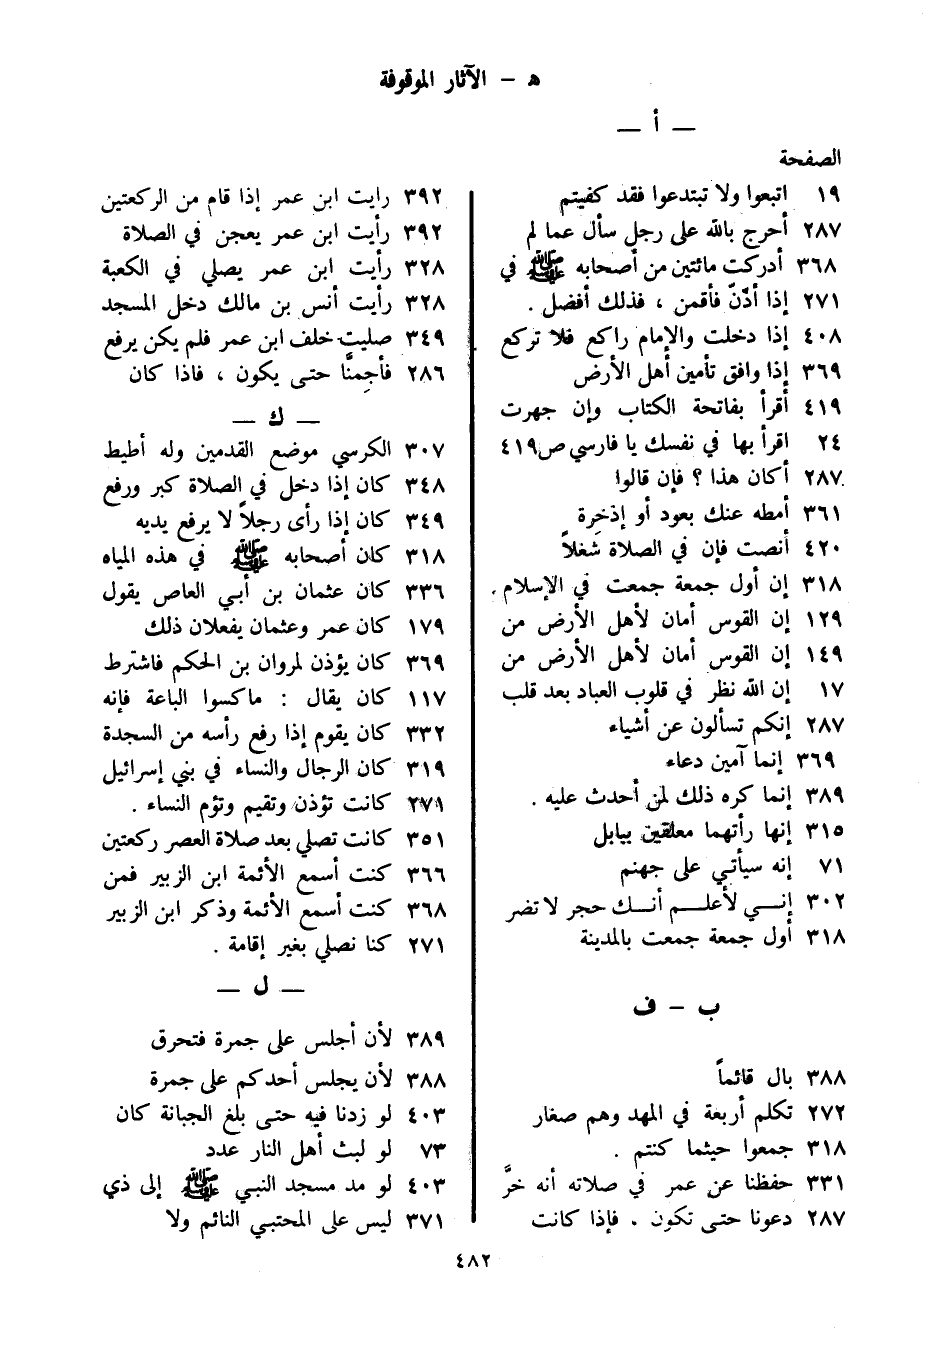 ه‍ - الآثار الموقوفة
— أ —
الصفحة
١٩ اتبعوا ولا تبتدعوا فقد كفيتم
٢٨٧ أحرج بالله على رجل سأل عما لم
٣٦٨ أدركت مائتين من أصحابه ﷺ في
٢٧١ إذا أذّنّ فأقمن ، فذلك أفضل .
٤٠٨ إذا دخلت والإمام راكع فلا تركع
٣٦٩ إذا وافق تأمين أهل الأرض
٤١٩ أقرأ بفاتحة الكتاب وإن جهرت
٢٤ اقرأ بها في نفسك يا فارسي ص٤١٩
٢٨٧ أكان هذا ؟ فإن قالوا
٣٦١ أمطه عنك بعود أو إذخِرة
٤٢٠ أنصت فإن في الصلاة شغلاً
٣١٨ إن أول جمعة جمعت في الإسلام .
١٢٩ إن القوس أمان لأهل الأرض من
١٤٩ إن القوس أمان لأهل الأرض من
١٧ إن الله نظر في قلوب العباد بعد قلب
٢٨٧ إنكم تسألون عن أشياء
٣٦٩ إنما آمين دعاء
٣٨٩ إنما كره ذلك لمن أحدث عليه .
٣١٥ إنها رأتهما معلقين ببابل
٧١ إنه سيأتي على جهنم
٣٠٢ إنـــي لأعلـــم أنـــك حجر لا تضر
٣١٨ أول جمعة جمعت بالمدينة
ب - ف
٣٨٨ بال قائماً
٢٧٢ تكلم أربعة في المهد وهم صغار
٣١٨ جمعوا حيثما كنتم .
٣٣١ حفظنا عن عمر في صلاته أنه خرَّ
٢٨٧ دعونا حتى تكون . فإذا كانت
٣٩٢ رايت ابن عمر إذا قام من الركعتين
٣٩٢ رأيت ابن عمر يعجن في الصلاة
٣٢٨ رأيت ابن عمر يصلي في الكعبة
٣٢٨ رأيت أنس بن مالك دخل المسجد
٣٤٩ صليت خلف ابن عمر فلم يكن يرفع
٢٨٦ فأجمِنَّا حتى يكون ، فاذا كان
— ك —
٣٠٧ الكرسي موضع القدمين وله أطيط
٣٤٨ كان إذا دخل في الصلاة كبر ورفع
٣٤٩ كان إذا رأى رجلاً لا يرفع يديه
٣١٨ كان أصحابه ﷺ في هذه المياه
٣٣٦ كان عثمان بن أبي العاص يقول
١٧٩ كان عمر وعثمان يفعلان ذلك
٣٦٩ كان يؤذن لمروان بن الحكم فاشترط
١١٧ كان يقال : ماكسوا الباعة فإنه
٣٣٢ كان يقوم إذا رفع رأسه من السجدة
٣١٩ كان الرجال والنساء في بني إسرائيل
٢٧١ كانت تؤذن وتقيم وتؤم النساء .
٣٥١ كانت تصلي بعد صلاة العصر ركعتين
٣٦٦ كنت أسمع الأئمة ابن الزبير فمن
٣٦٨ كنت أسمع الأئمة وذكر ابن الزبير
٢٧١ كنا نصلي بغير إقامة .
— ل —
٣٨٩ لأن أجلس على جمرة فتحرق
٣٨٨ لأن يجلس أحدكم على جمرة
٤٠٣ لو زدنا فيه حتى بلغ الجبانة كان
٧٣ لو لبث أهل النار عدد
٤٠٣ لو مد مسجد النبي ﷺ إلى ذي
٣٧١ ليس على المحتبي النائم ولا
٤٨٢